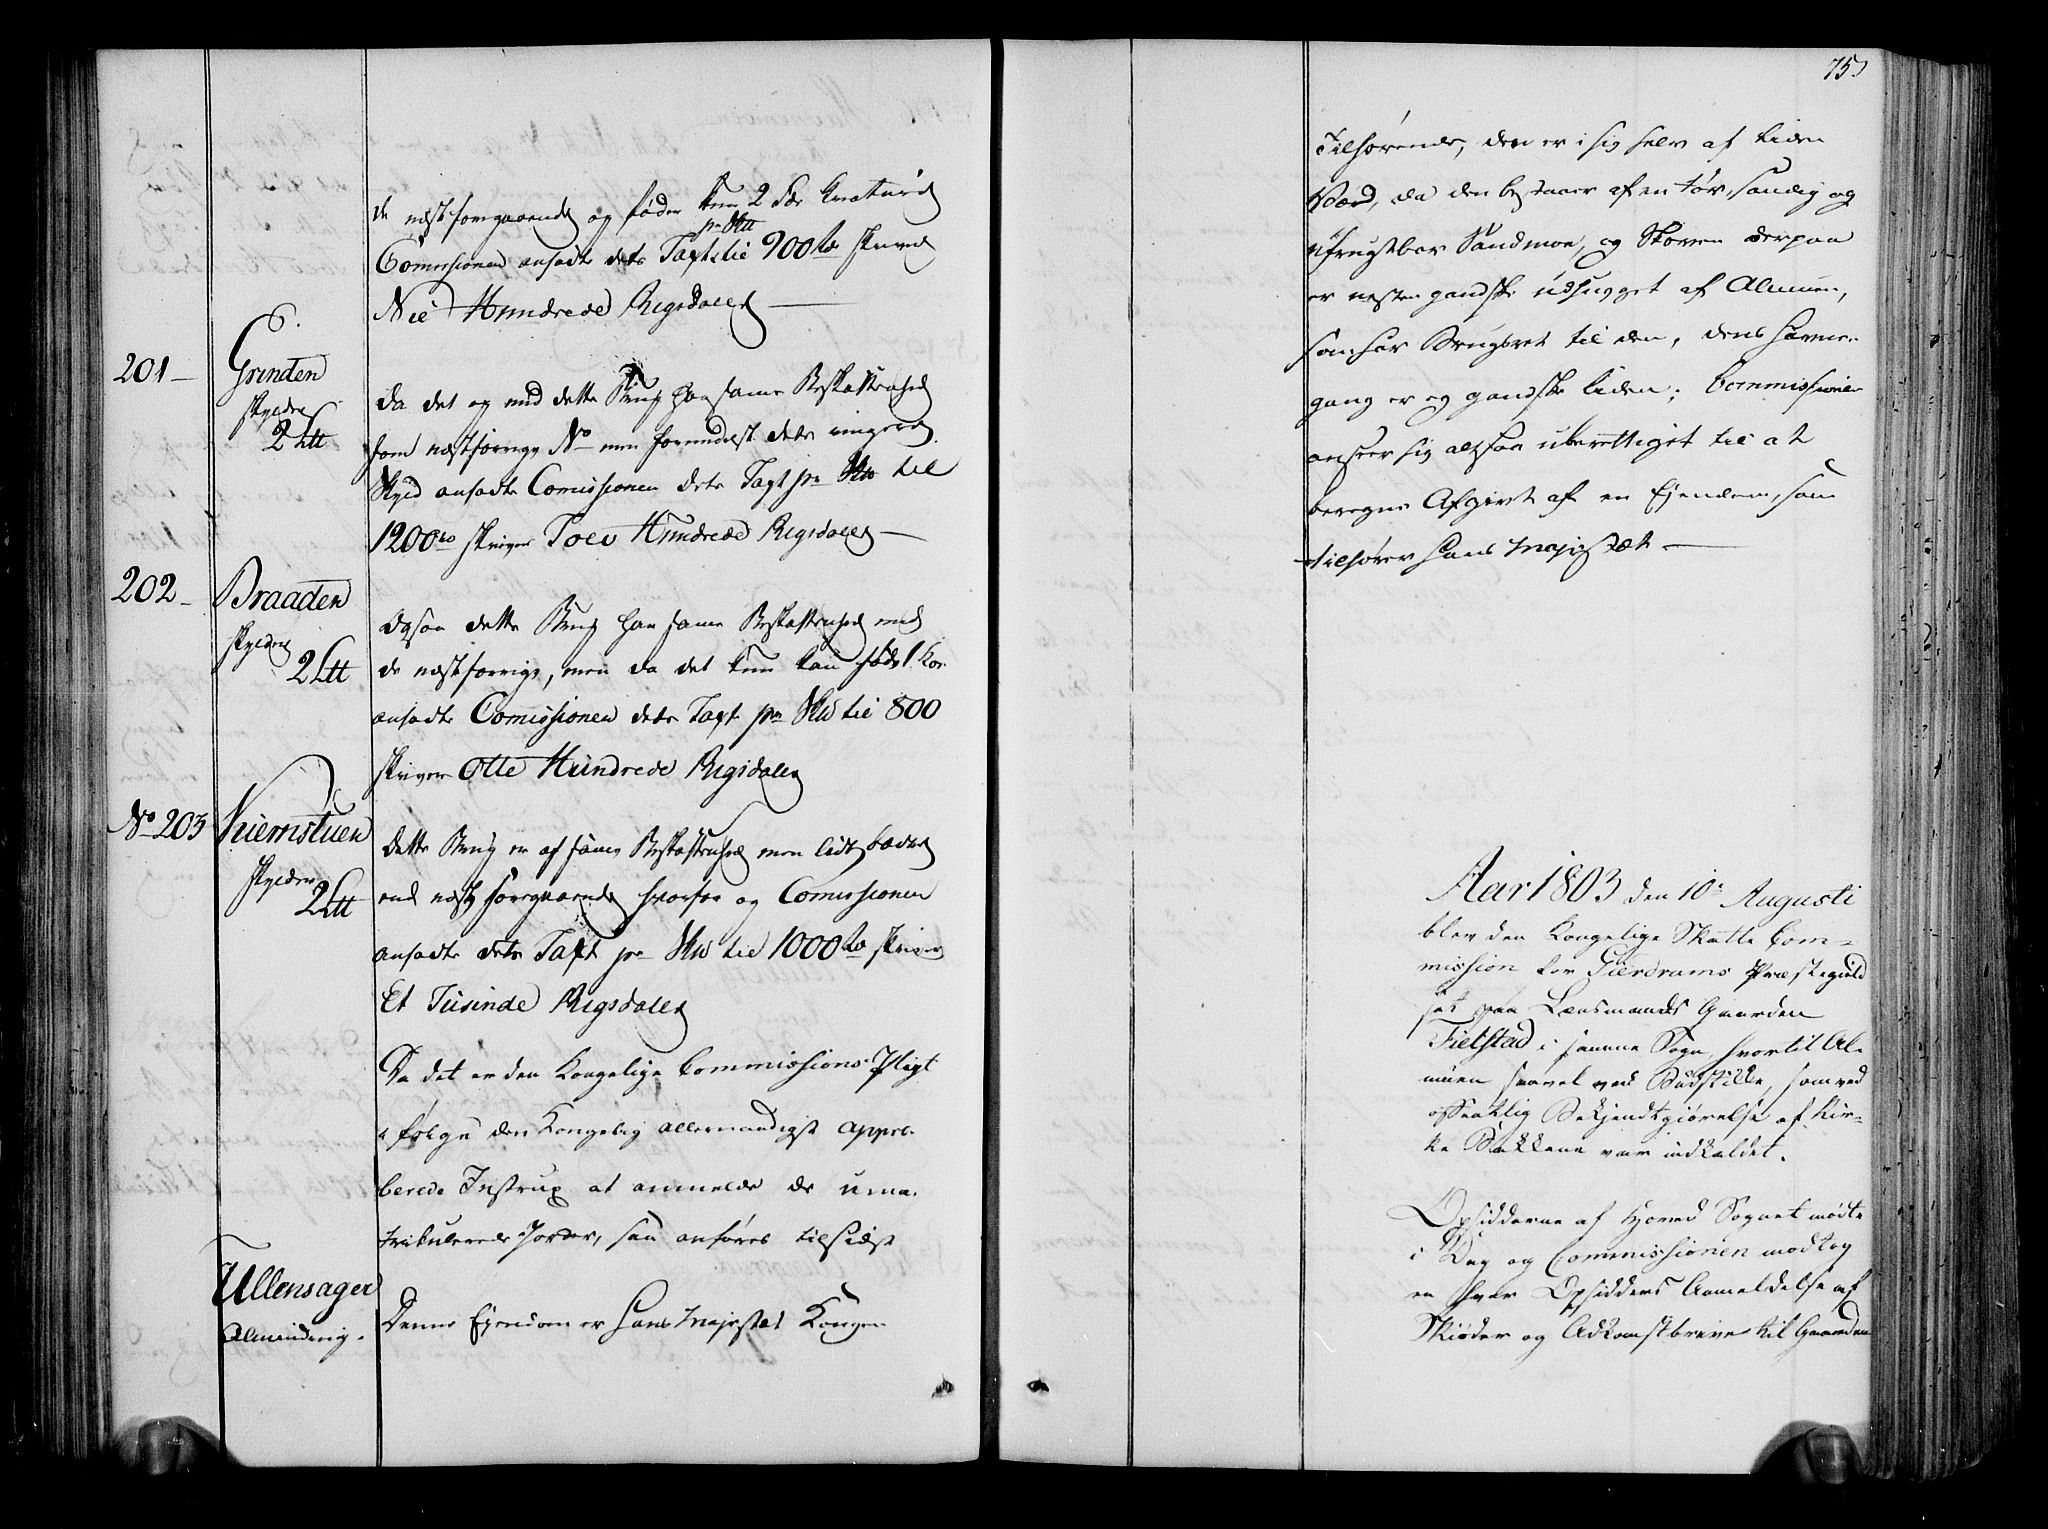 de næstforgaaende og føder kun 2 Stk Creaturer
Comissionen ansadte dets Taxt pr Sktt til 900 rd skriver
Nie Hundrede Rigsdaler
201 –
Grinden
skylder
2 Ltt
Da det og med dette Brug har samme Beskaffenhed
som næstforrige No men formedelst dets ringere
Skyld ansadte Comissionen dets Taxt pr Skd til
1200 rd skriver Tolv Hundrede Rigsdaler
202 –
Braaden
skylder
2 Ltt
Ogsaa dette Brug har samme Beskaffenhed med
de næstforrige, men da det kun kan føde 1 Koe
ansadte Comissionen dets Taxt pr Skd til 800
skriver Otte Hundrede Rigsdaler
No 203
skylder
2 Ltt
Dette Brug er af samme Beskaffenhed men lidt bedre
end næst forgaaende hvorfor og Comissionen
ansadte dets Taxt pr Skd til 1000 rd skriver
Et Tusinde Rigsdaler
Da det er den Kongelige Commissions Pligt
i følge den Kongelig allernaadigst appro-
berede Instrux at anmelde de uma-
trikulerede Jorder, saa anføres tilsidst
Ullensager
Alminding.
Denne Ejendom er Hans Majestæt Kongen
75
Tilhørende, den er i sig selv af liden
Værd, da den bestaaer af en tør, sandig og
ufrugtbar Sandmoe, og Skoven derpaa
er nesten gandske udhugget af Almuen,
som har Brugsret til den, dens Havne-
gang er og gandske liden; Commissionen
anseer sig altsaa uberettiget til at
beregne Afgivt af en Ejendom, som
tilhører Hans Majestæt
Aar 1803 den 10de Augusti
blev den Kongelige Skatte Com-
mission for Gierdrums Præstegield
sat paa Lensmands Gaarden
Fielstad i samme Sogn, hvortil Al-
muen saavel ved Budstikke, som ved
offentlig Bekjendtgiørelse af Kir-
ke Bakkene var indkaldet.
Opsidderne af Hoved Sognet mødte
i Dag og Commissionen modtog
en hver Opsidders Anmeldelse af
Skiøder og Adkomstbreve til Gaarden